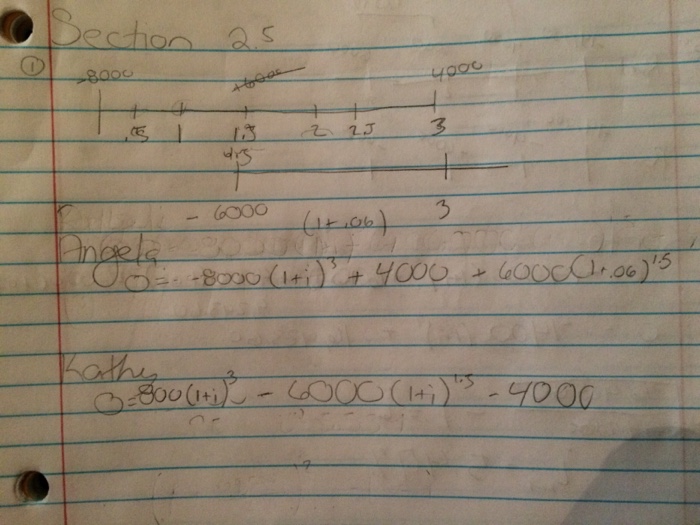 Section 2.5
①
-8000 +6000 4000
.5 1 1.5 2 2.5 3
1.5
- 6000 (1+.06) 3
Angela
0 = -8000(1+i)^3 + 4000 + 6000(1+.06)^1.5
Kathy
0=800(1+i)^3 - 6000(1+i)^1.5 - 4000